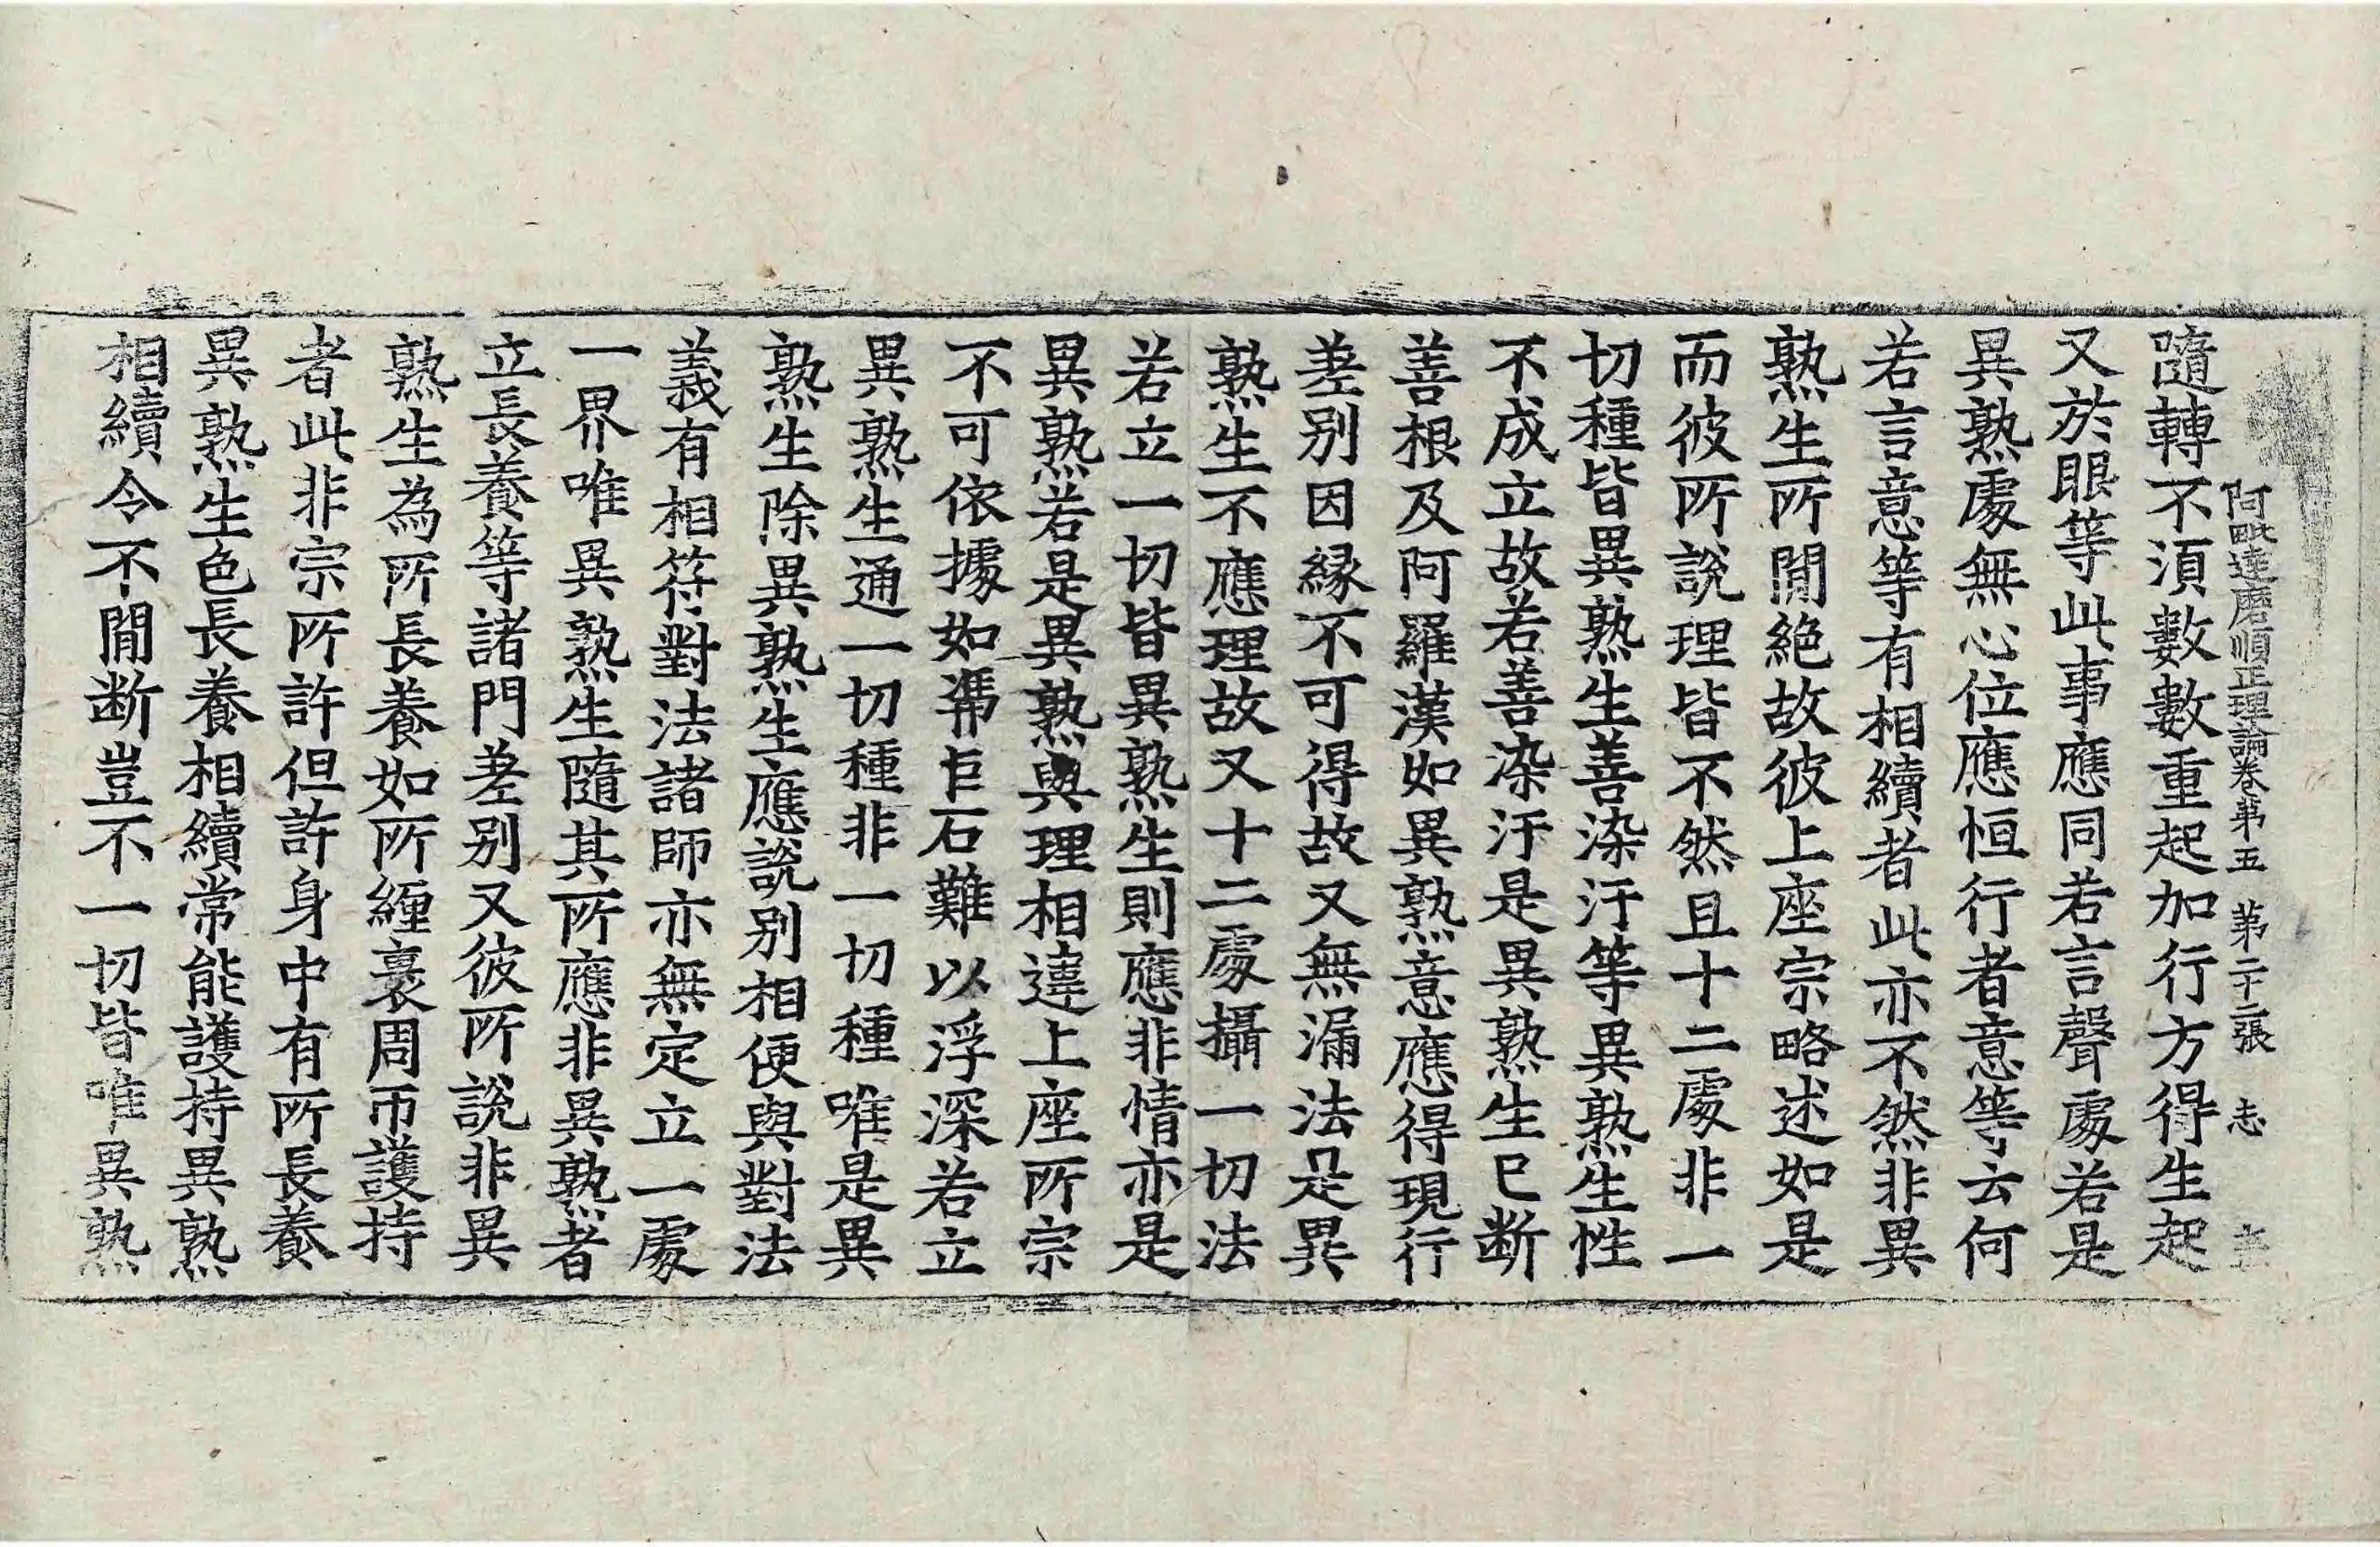 阿毗達磨順正理論卷苐五 苐二十二張 志
隨轉不湏數數重起加行方得生起
又於眼等此事應同若言聲處若是
異熟處無心位應恒行者意等云何
若言意等有相續者此亦不然非異
熟生所閒絶故彼上座宗略述如是
而彼所說理皆不然且十二處非一
切種皆異熟生善染汙等異熟生性
不成立故若善染汙是異熟生已断
善根及阿羅漢如異熟意應得現行
差别因縁不可得故又無漏法是異
熟生不應理故又十二處攝一切法
若立一切皆異熟生則應非情亦是
異熟若是異熟與理相違上座所宗
不可依據如馮𠂋石難以浮深若立
異熟生通一切種非一切種唯是異
熟生除異熟生應說别相便與對法
義有相符對法諸師亦無定立一處
一界唯異熟生隨其所應非異熟者
立長養等諸門差别又彼所說非異
熟生為所長養如所纏裹周帀護持
者此非宗所許但許身中有所長養
異熟生色長養相續常能護持異熟
相續令不閒断豈不一切皆唯異熟